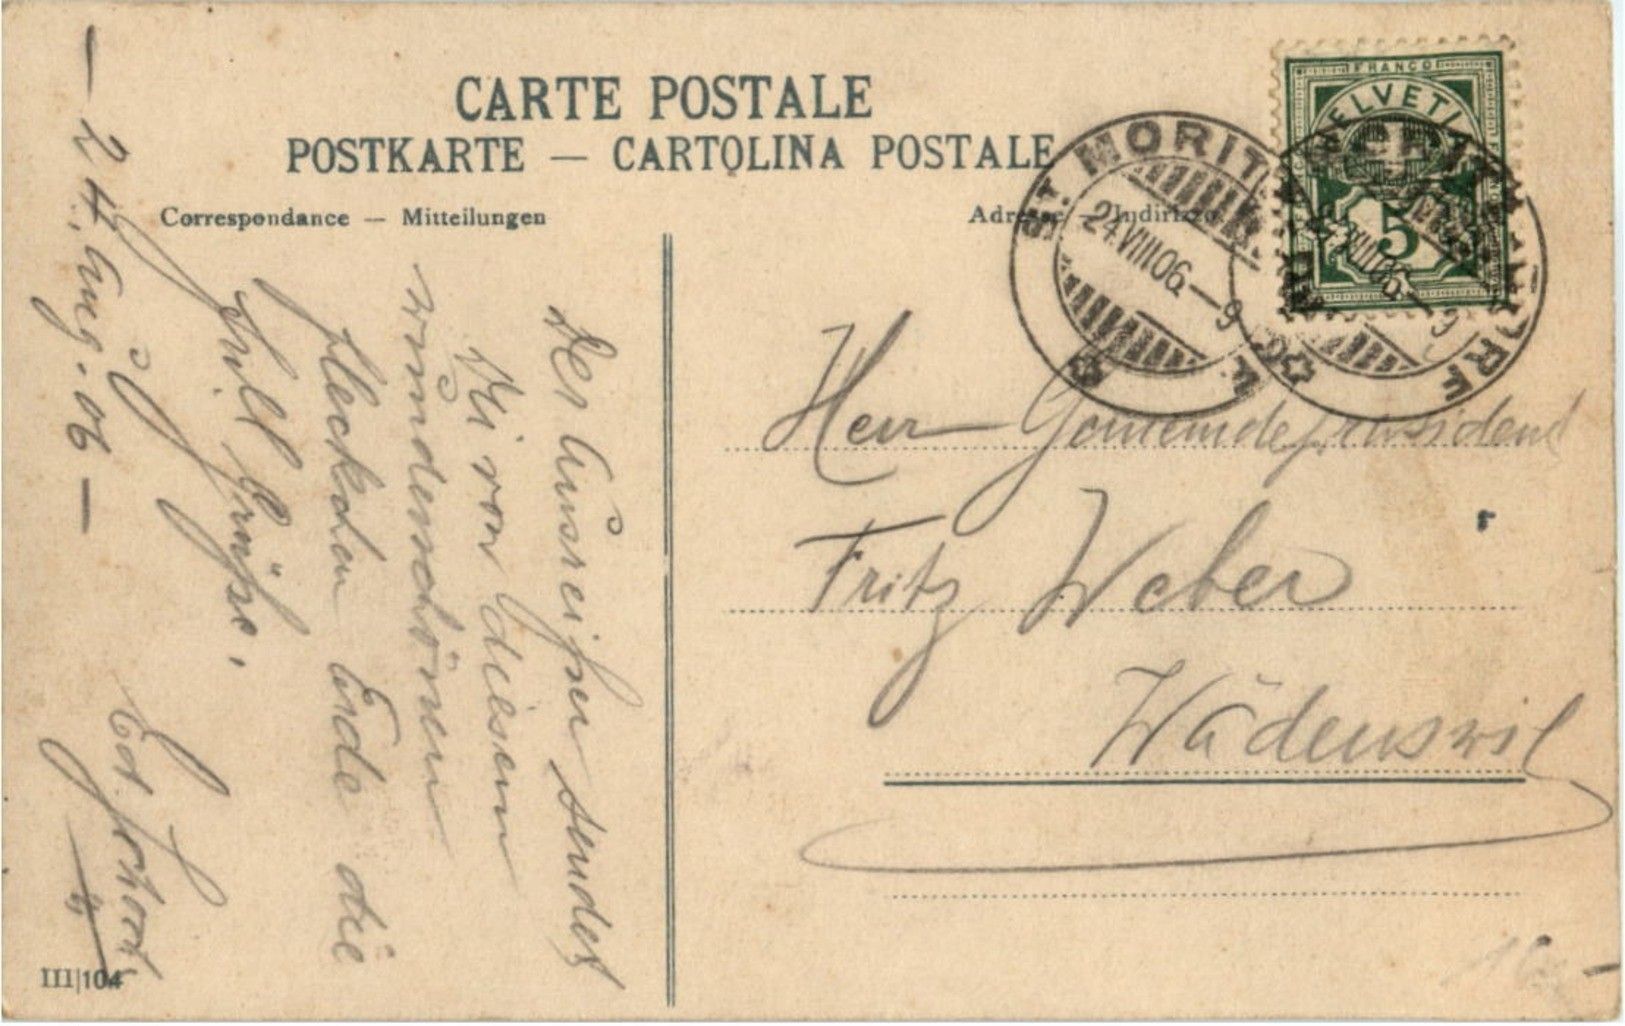 CARTE POSTALE
POSTKARTE — CARTOLINA POSTALE
Correspondance — Mitteilungen
Adresse — Indirizzo
FRANCO
HELVETIA
5
ST. MORITZ
24.VIII.06.—9
DORF
Herr Gemeindepräsident
Fritz Weber
Wädenswil
Der Ausreißer sendet
von diesem
wunderschönen
Fleckchen Erde die
Grüße.
— 24. Aug. 06 —
Ed. Schoch
III|104